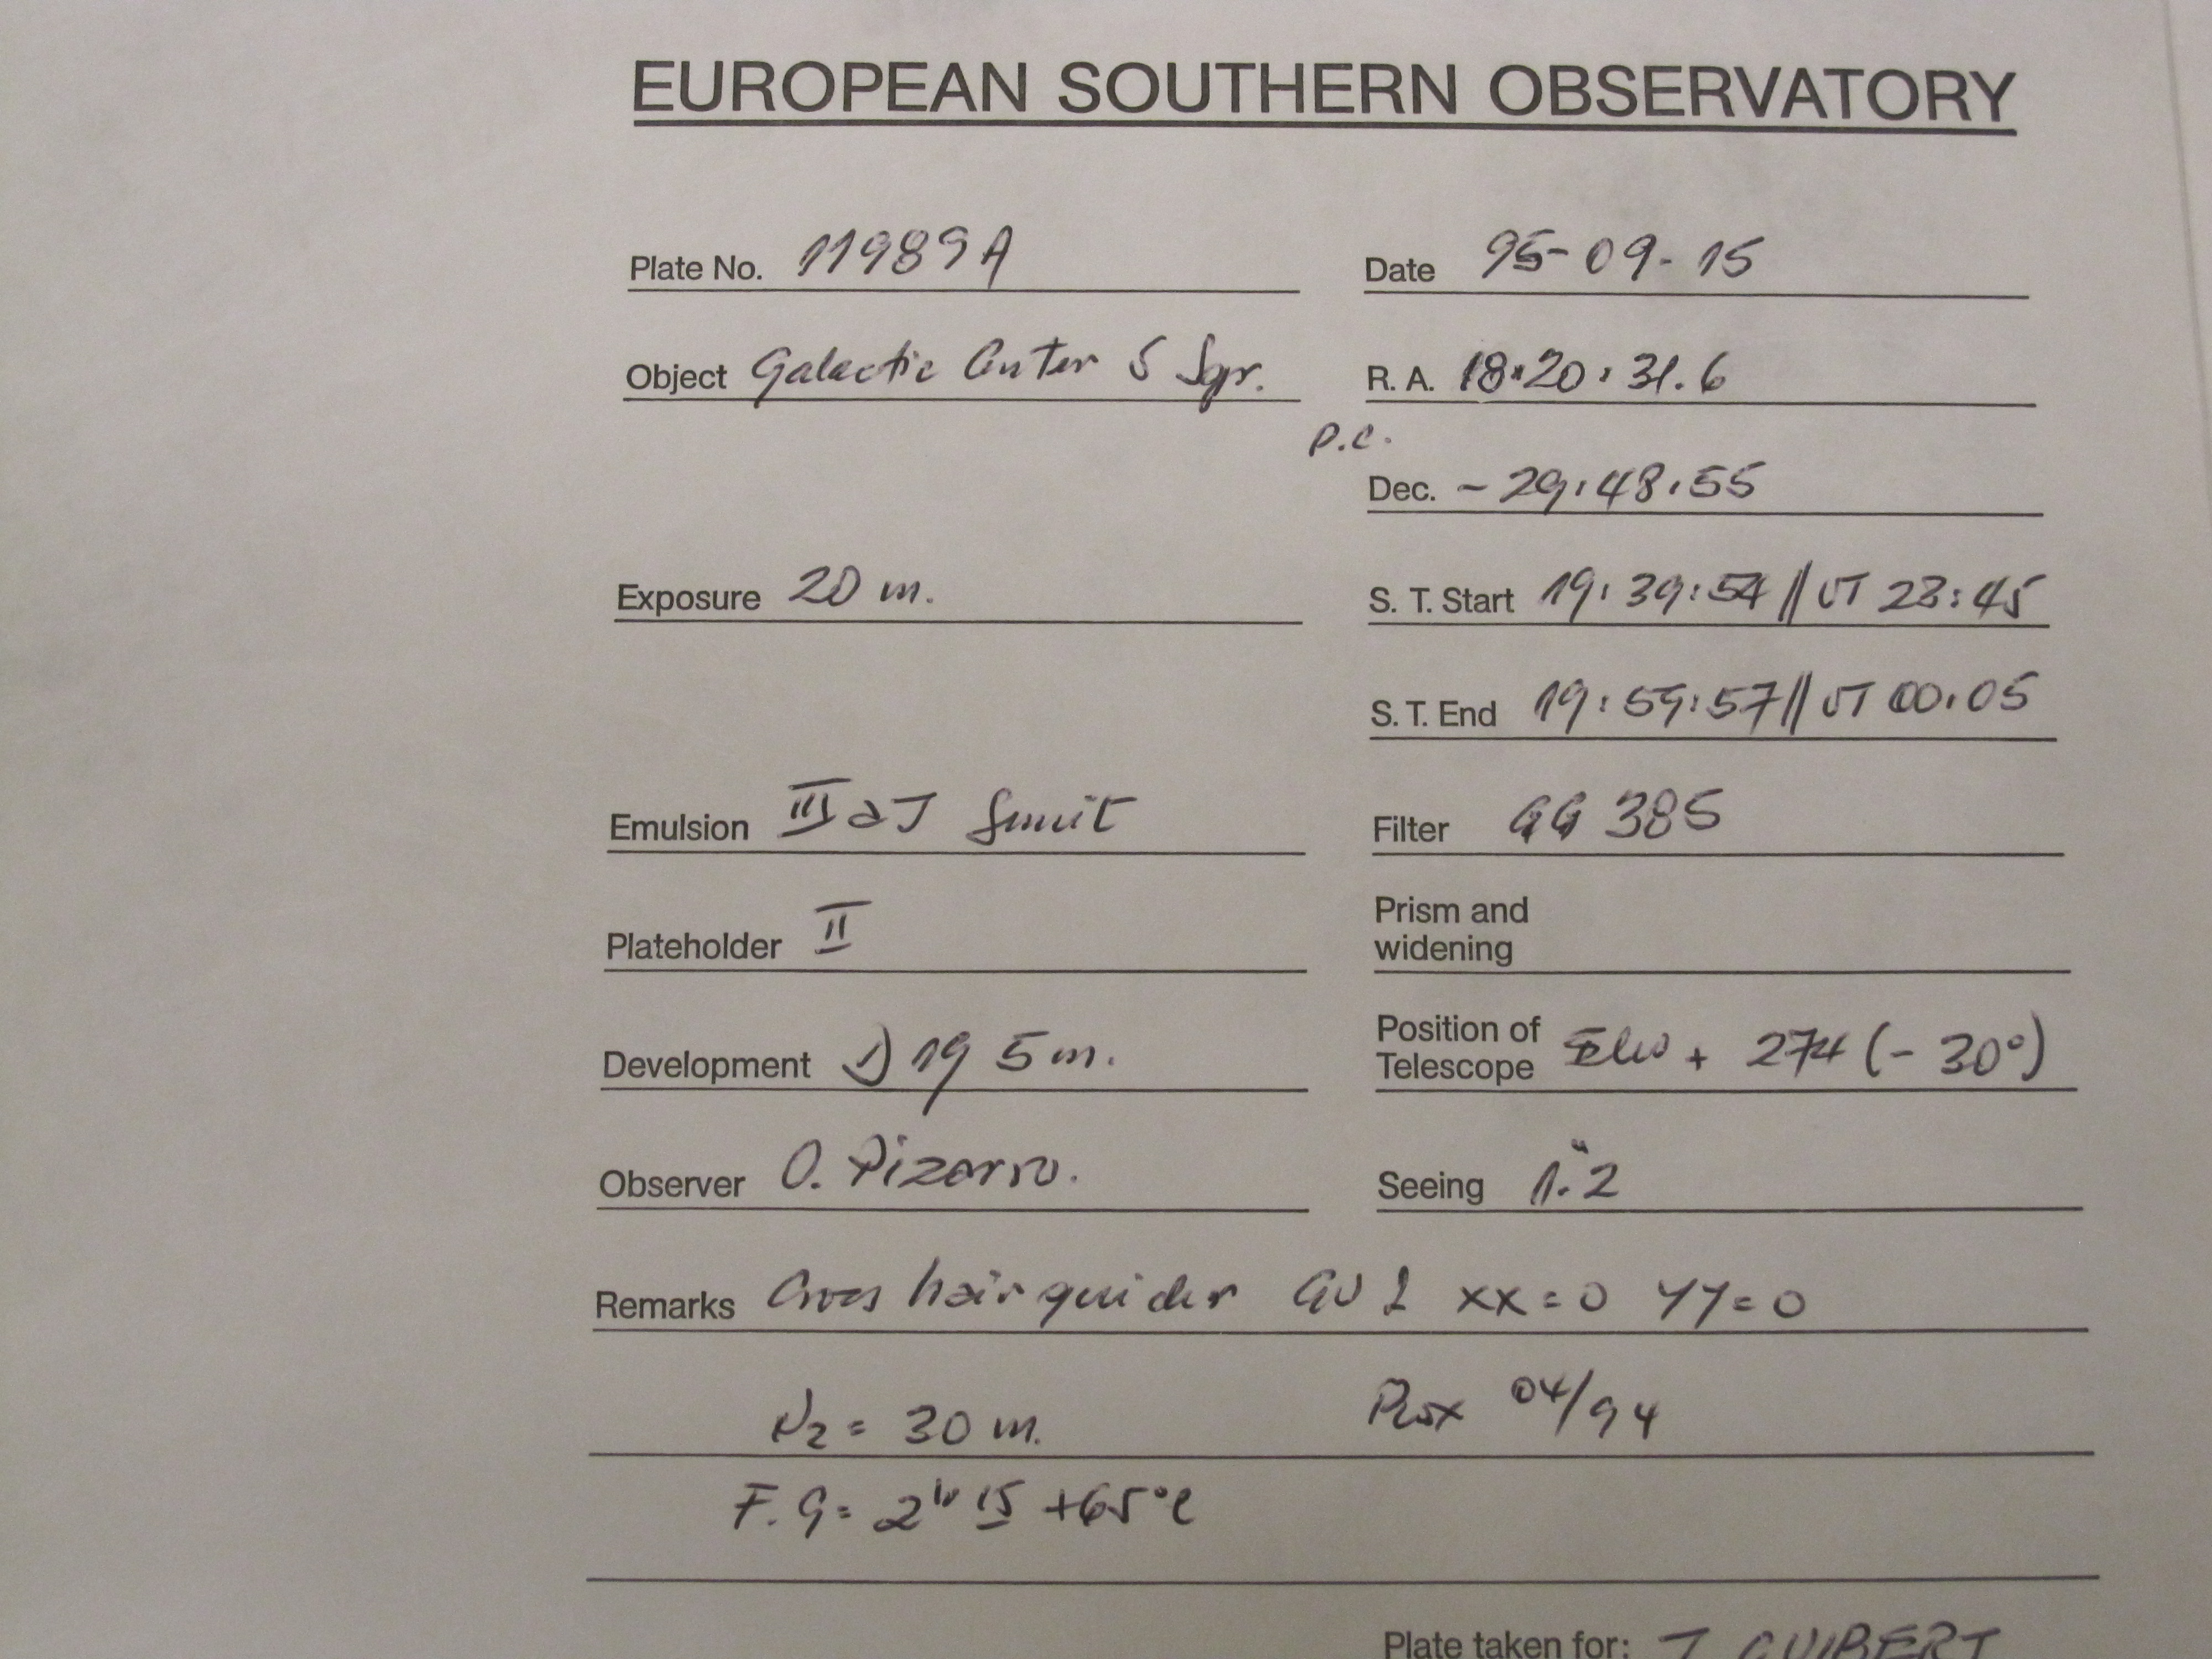 EUROPEAN SOUTHERN OBSERVATORY
Plate No. 11989A Date 95-09-15
Object Galactic Center 5 Sgr. R. A. 18:20:31.6
P.C.
Dec. -29:48:55
Exposure 20 m. S. T. Start 19:39:54 // UT 23:45
S. T. End 19:59:57 // UT 00:05
Emulsion III aJ Filter GG 385
Plateholder II Prism and widening
Development D19 5m. Position of Telescope + 274 (-30°)
Observer O. Pizarro. Seeing 1."2
Remarks Cross hair guider xx=0 YY=0
N2 = 30 m. 04/94
F. G = 2h 15 +65°C
Plate taken for: J GUIBERT